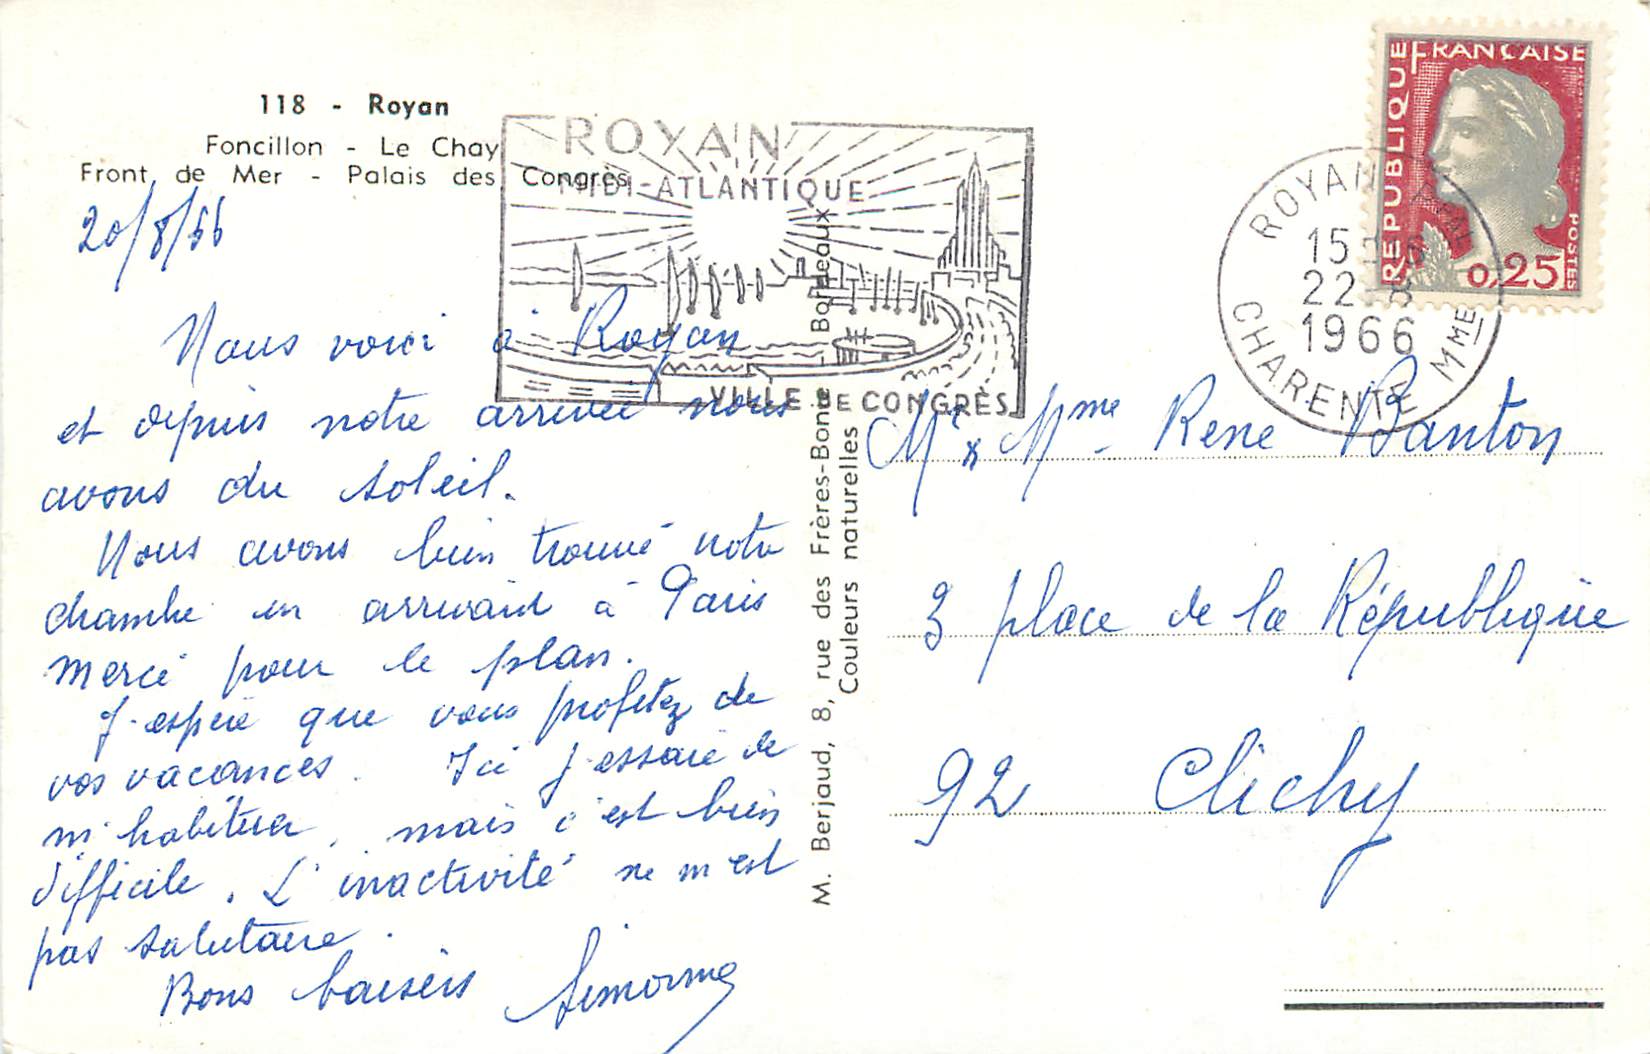 118 - Royan
Foncillon - Le Chay
Front de Mer - Palais des Congrès
20/8/66
Nous voici à Royan
et depuis notre arrivée nous
avons du soleil.
Nous avons bien trouvé notre
chambre en arrivant à Paris
merci pour le plan.
J'espère que vous profitez de
vos vacances. Ici j'essaie de
m'habituer, mais c'est bien
difficile. L'inactivité ne m'est
pas salutaire.
Bons baisers Simonne
ROYAN
MIDI-ATLANTIQUE
VILLE DE CONGRÈS
M. Berjaud, 8, rue des Frères-Bonie - Bordeaux
Couleurs naturelles
REPUBLIQUE FRANÇAISE
POSTES
0,25
ROYAN
15
22
1966
CHARENTE MME
Mr & Mme Rene Banton
3 place de la République
92 Clichy